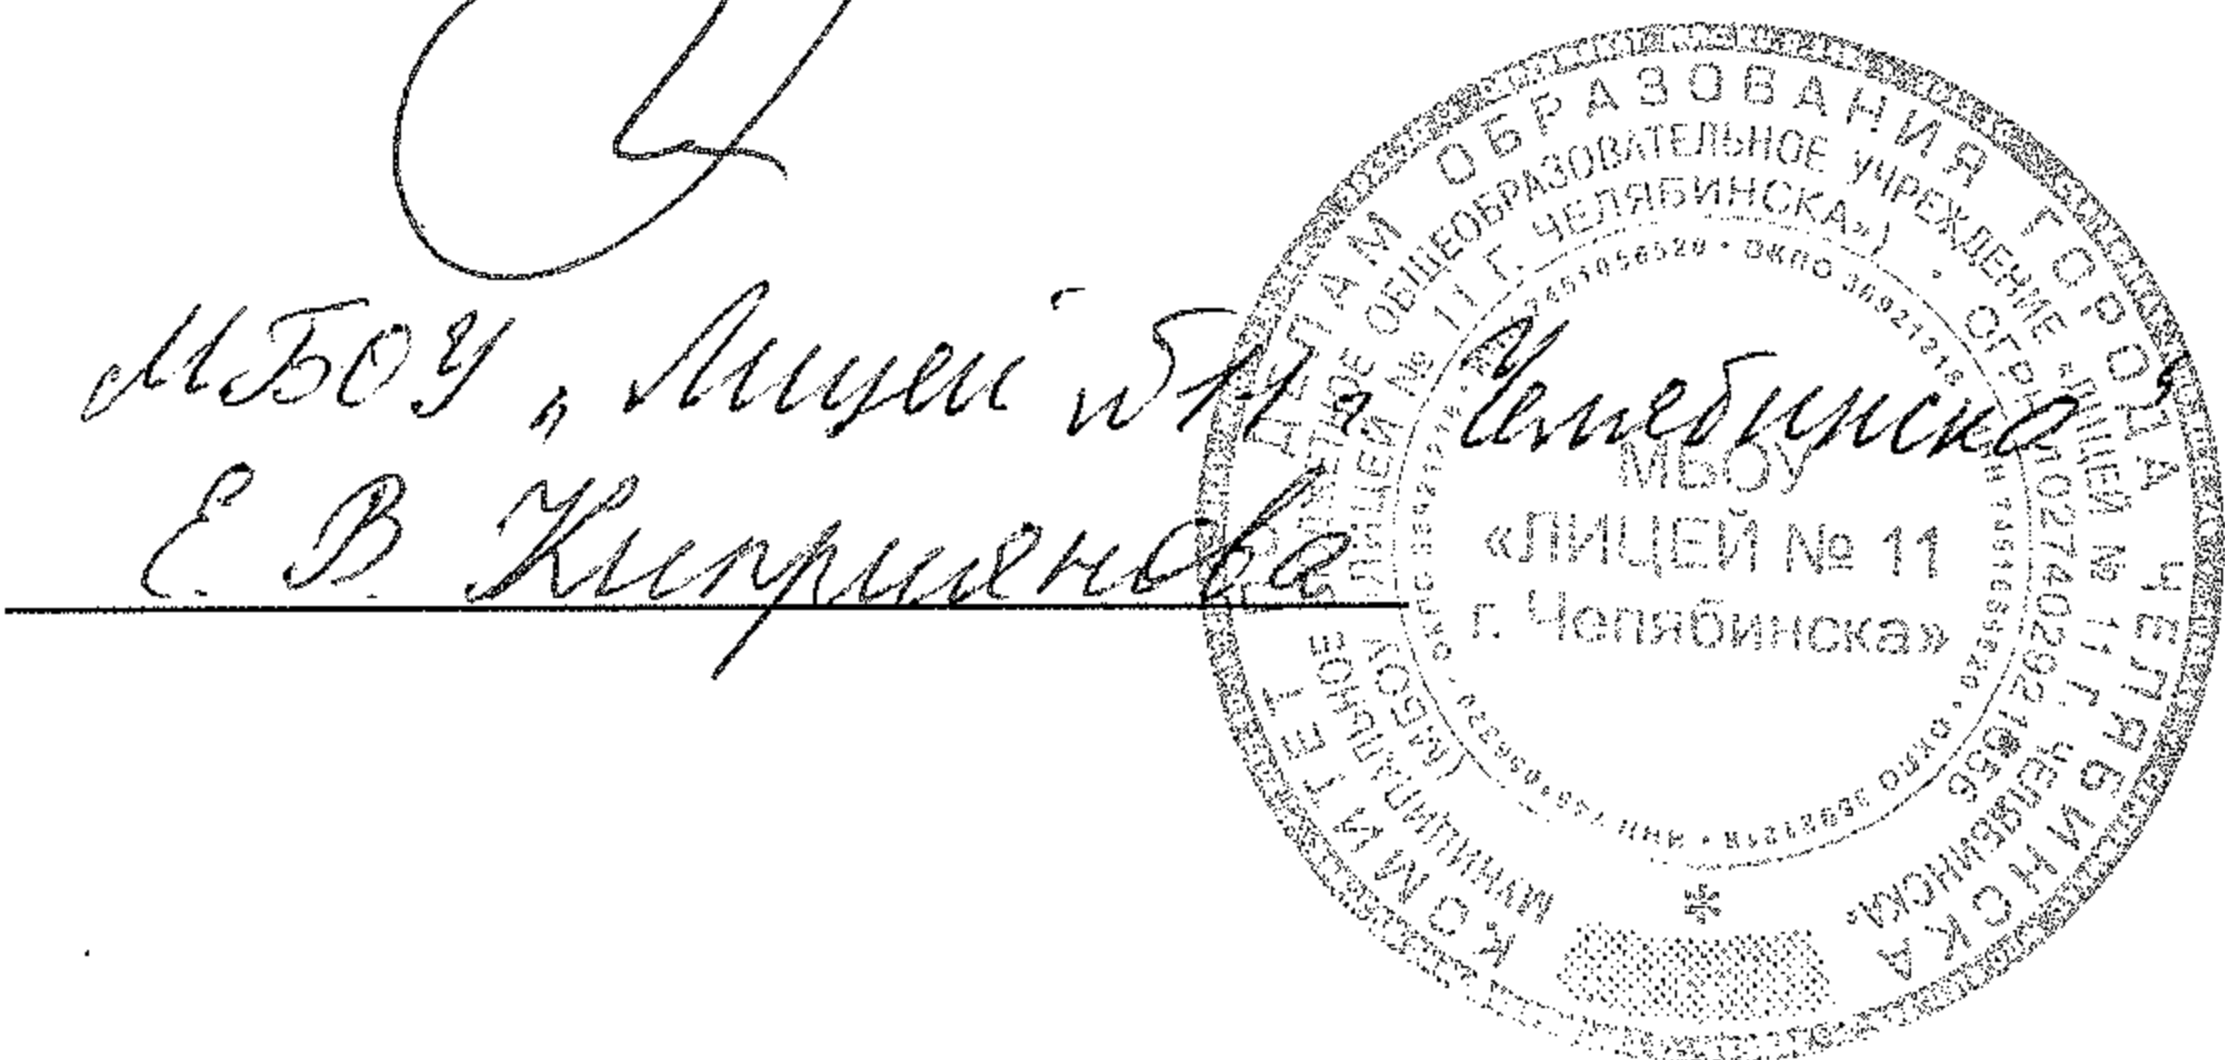 МБОУ „Лицей №11 г. Челябинска"
Е. В. Киприянова
КОМИТЕТ ПО ДЕЛАМ ОБРАЗОВАНИЯ ГОРОДА ЧЕЛЯБИНСКА
МУНИЦИПАЛЬНОЕ БЮДЖЕТНОЕ ОБЩЕОБРАЗОВАТЕЛЬНОЕ УЧРЕЖДЕНИЕ «ЛИЦЕЙ № 11 Г. ЧЕЛЯБИНСКА»
(МБОУ «ЛИЦЕЙ № 11 Г. ЧЕЛЯБИНСКА») • ОГРН 1027402921656
МБОУ
«ЛИЦЕЙ № 11
г. Челябинска»